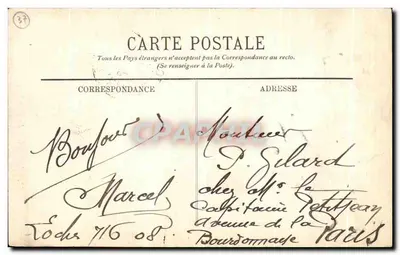 37
CARTE POSTALE
Tous les Pays étrangers n'acceptent pas la Correspondance au recto.
(Se renseigner à la Poste).
CORRESPONDANCE
ADRESSE
Bonjour à
Marcel
Loches 7/6 08.
Monsieur
P. Gilard
chez Mr le
Capitaine Petitjean
avenue de la
Bourdonnaye Paris